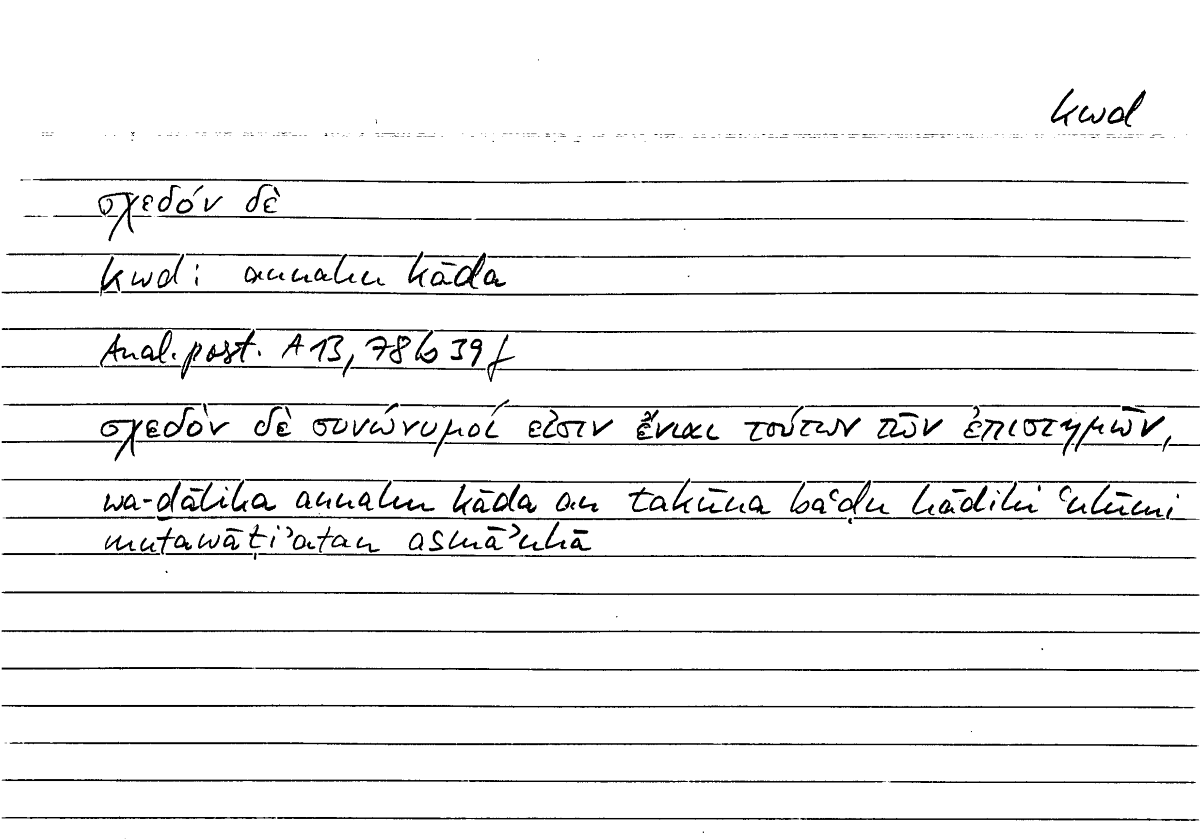 kwd
σχεδόν δὲ
kwd: annahu kāda
Anal. post. A 13, 78 b 39 f
σχεδὸν δὲ συνώνυμοί εἰσιν ἔνιαι τούτων τῶν ἐπιστημῶν,
wa-ḏālika annahu kāda an takūna baʿḍu hāḏihi ʿulūmi
mutawāṭiʾatan asmāʾuhā